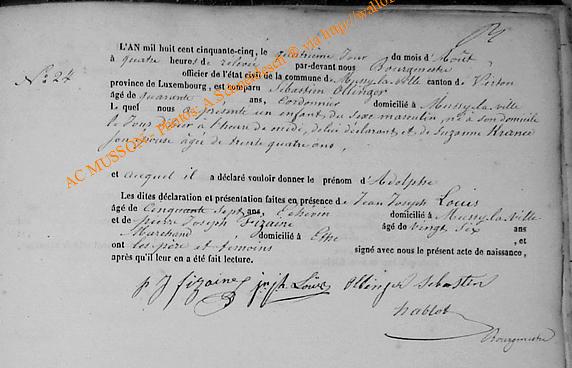 No: 24
L'AN mil huit cent cinquante-cinq, le quatrieme Jour du mois d'Août
à quatre heures de relevée par-devant nous Bourgmestre
officier de l'état civil de la commune de Mussy-la-ville canton de Virton
province de Luxembourg, est comparu Sebastien Ollinger
âgé de quarante ans, Cordonnier domicilié à Mussy-la-ville
Lequel nous a présenté un enfant du sexe masculin, né à son domicile
le Jour d'hier à l'heure de midi, de lui déclarant et de Suzanne
son épouse âgée de trente quatre ans,
et auquel il a déclaré vouloir donner le prénom d'Adolphe
Les dites déclaration et présentation faites en présence de Jean Joseph Louis
âgé de Cinquante Sept ans, Echevin domicilié à Mussy-la-ville
et de pierre Joseph Fizaine âgé de vingt Six ans
Marchand domicilié à Ethe , et
ont les père et temoins signé avec nous le présent acte de naissance,
après qu'il leur en a été fait lecture.
p J fizaine Louis Ollinger Sebastien
nablot
Bourgmestre
AC MUSSON - Photos: A S via http://wallo